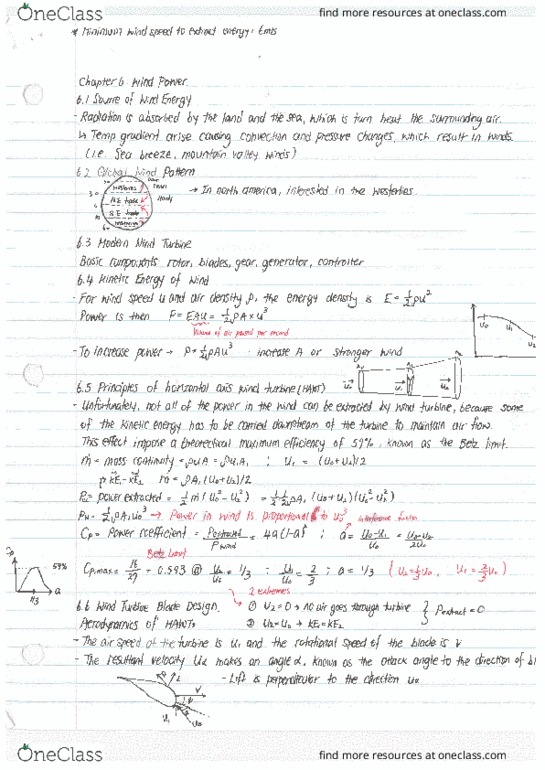 OneClass
find more resources at oneclass.com
* Minimum wind speed to extract energy: 6m/s
Chapter 6 Wind Power
6.1 Source of Wind Energy
- Radiation is absorbed by the land and the sea, which is turn heat the surrounding air.
↳ Temp gradient arise causing convection and pressure changes, which result in winds.
(i.e. Sea breeze, mountain valley winds)
6.2 Global Wind Pattern
→ In north america, interested in the westerlies.
westerlies
N.E. trade
S.E. trade
westerlies
6.3 Modern Wind Turbine
Basic components: rotor, blades, gear, generator, controller
6.4 Kinetic Energy of Wind
- For wind speed u and air density ρ, the energy density is E = ½ρu²
Power is then P = EAu = ½ρA × u³
Volume of air passed per second
- To increase power → P = ½ρAu³ - increase A or stronger wind
6.5 Principles of horizontal axis wind turbine (HAWT)
- Unfortunately, not all of the power in the wind can be extracted by wind turbine, because some
of the kinetic energy has to be carried downstream of the turbine to maintain air flow.
This effect impose a theoretical maximum efficiency of 59%, known as the Betz limit.
ṁ = mass continuity = ρuA = ρu₁A₁ ; u₁ = (u₀+u₂)/2
ṁ = ρA₁(u₀+u₂)/2
= power extracted = ½ṁ(u₀²-u₂²) = ½·½ρA₁(u₀+u₂)(u₀²-u₂²)
= ½ρA₁u₀³ → Power in wind is proportional to u₀³
interference factor
Cp = Power coefficient = Pextracted/Pwind = 4a(1-a)² ; a = (u₀-u₁)/u₀ = (u₀-u₂)/2u₀
Betz Limit
Cp,max = 16/27 = 0.593 @ = 1/3 ; u₁/u₀ = 2/3 ; a = 1/3 (u₂=⅓u₀, u₁=⅔u₀)
Cp
59%
1/3
a
2 extremes
6.6 Wind Turbine Blade Design. ① u₂ = 0 → no air goes through turbine } Pextract = 0
Aerodynamics of HAWTs ② u₂=u₀ → KE₁=KE₂
- The air speed at the turbine is u₁ and the rotational speed of the blade is v
- The resultant velocity makes an angle α, known as the attack angle to the direction of
- Lift is perpendicular to the direction
OneClass
find more resources at oneclass.com